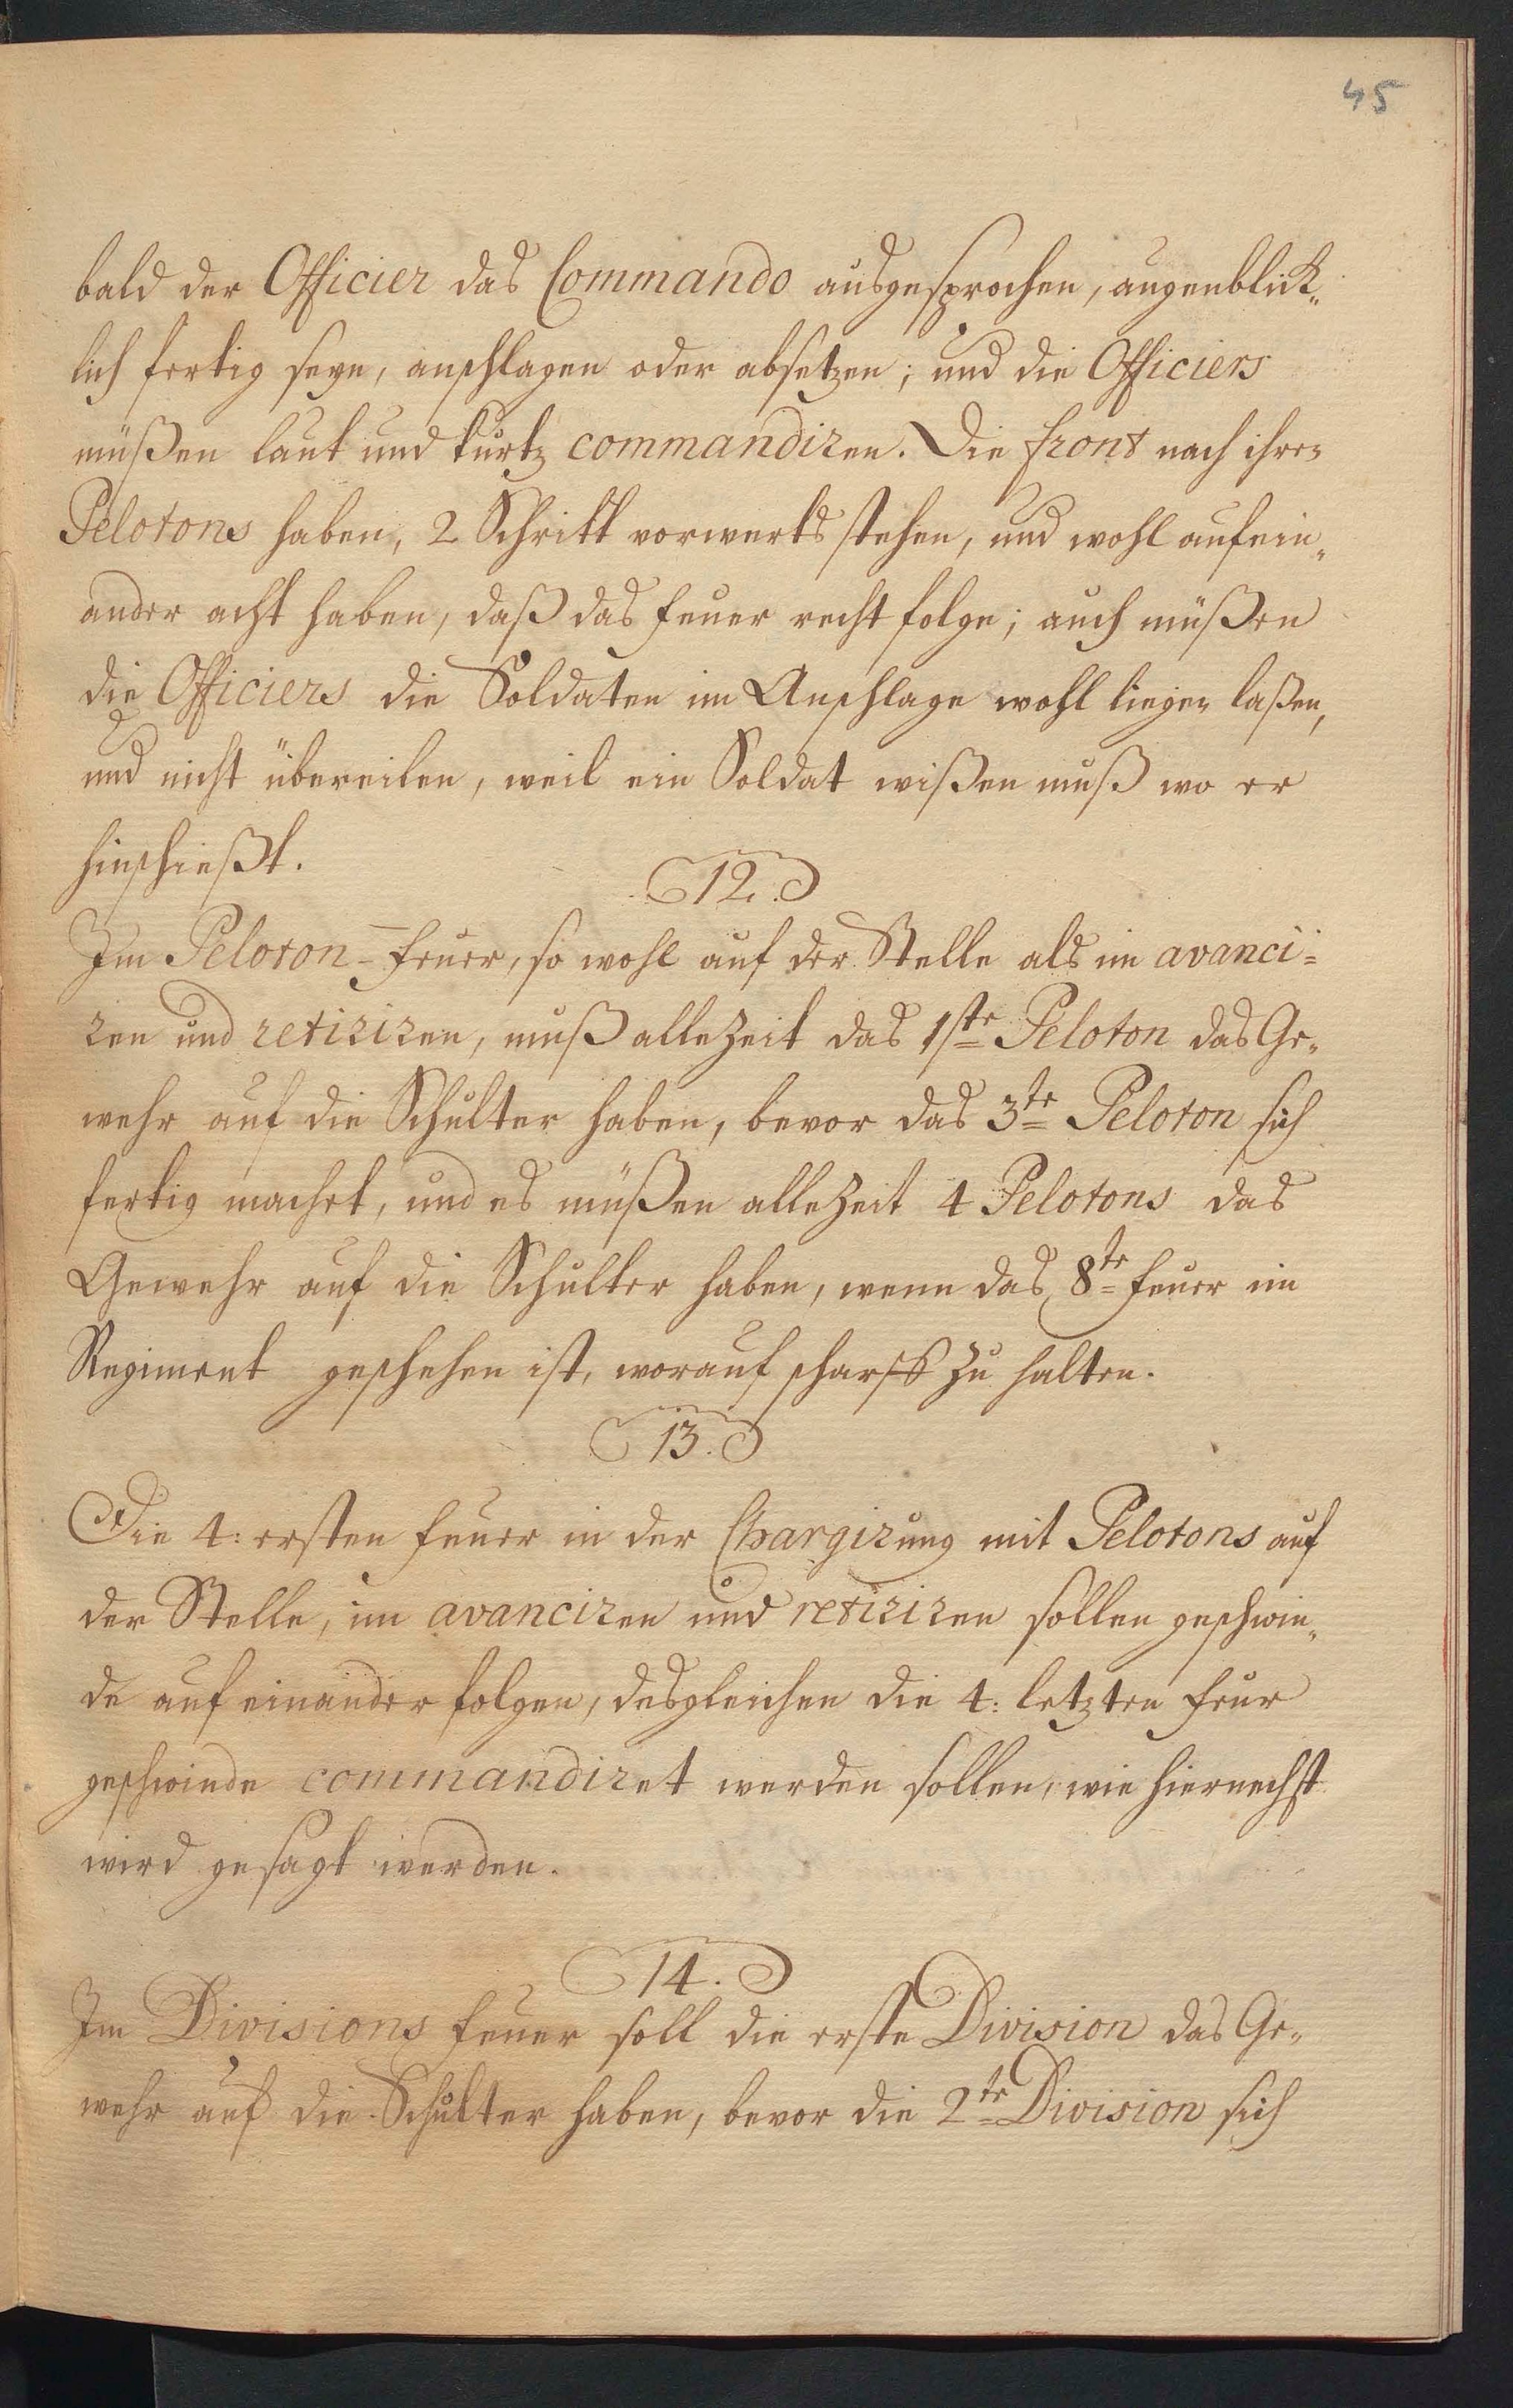 45
bald der Officier das Commando ausgesprochen, augenblick„
lich fertig seyn, anschlagen oder absetzen; und die Officiers
müßen laut und kurtz commandiren. Die Front nach ihren
Pelotons haben, 2 Schritt vorwerts stehen, und wohl aufein„
ander acht haben, daß das Feuer recht folge; auch müßen
die Officiers die Soldaten im Anschlage wohl liegen laßen,
und nicht übereilen, weil ein Soldat wißen muß wo er
hinschießt.
12.
Im Peloton=Feuer, so wohl auf der Stelle als im avanci=
ren und retiriren, muß allezeit das 1ste Peloton das Ge„
wehr auf die Schulter haben, bevor das 3te Peloton sich
fertig machet, und es müßen allezeit 4 Pelotons das
Gewehr auf die Schulter haben, wenn das 8te Feuer im
Regiment geschehen ist, worauf scharff zu halten.
13.
Die 4: ersten Feuer in der Chargirung mit Pelotons auf
der Stelle, im avanciren und retiriren sollen geschwin„
de aufeinander folgen, desgleichen die 4: letzten Feur
geschwinde commandiret werden sollen, wie hiernechst
wird gesagt werden.
14.
Im Divisions Feuer soll die erste Division das Ge„
wehr auf die Schulter haben, bevor die 2te Division sich